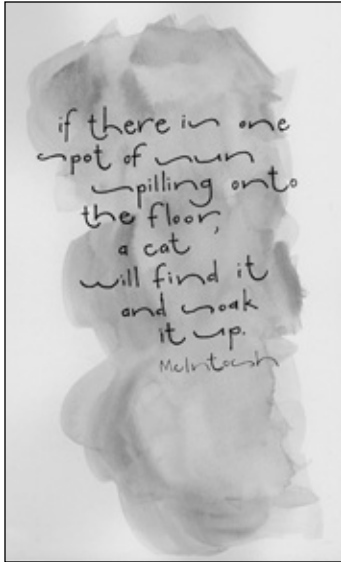 if there is one
spot of sun
spilling onto
the floor,
a cat
will find it
and soak
it up.
McIntosh